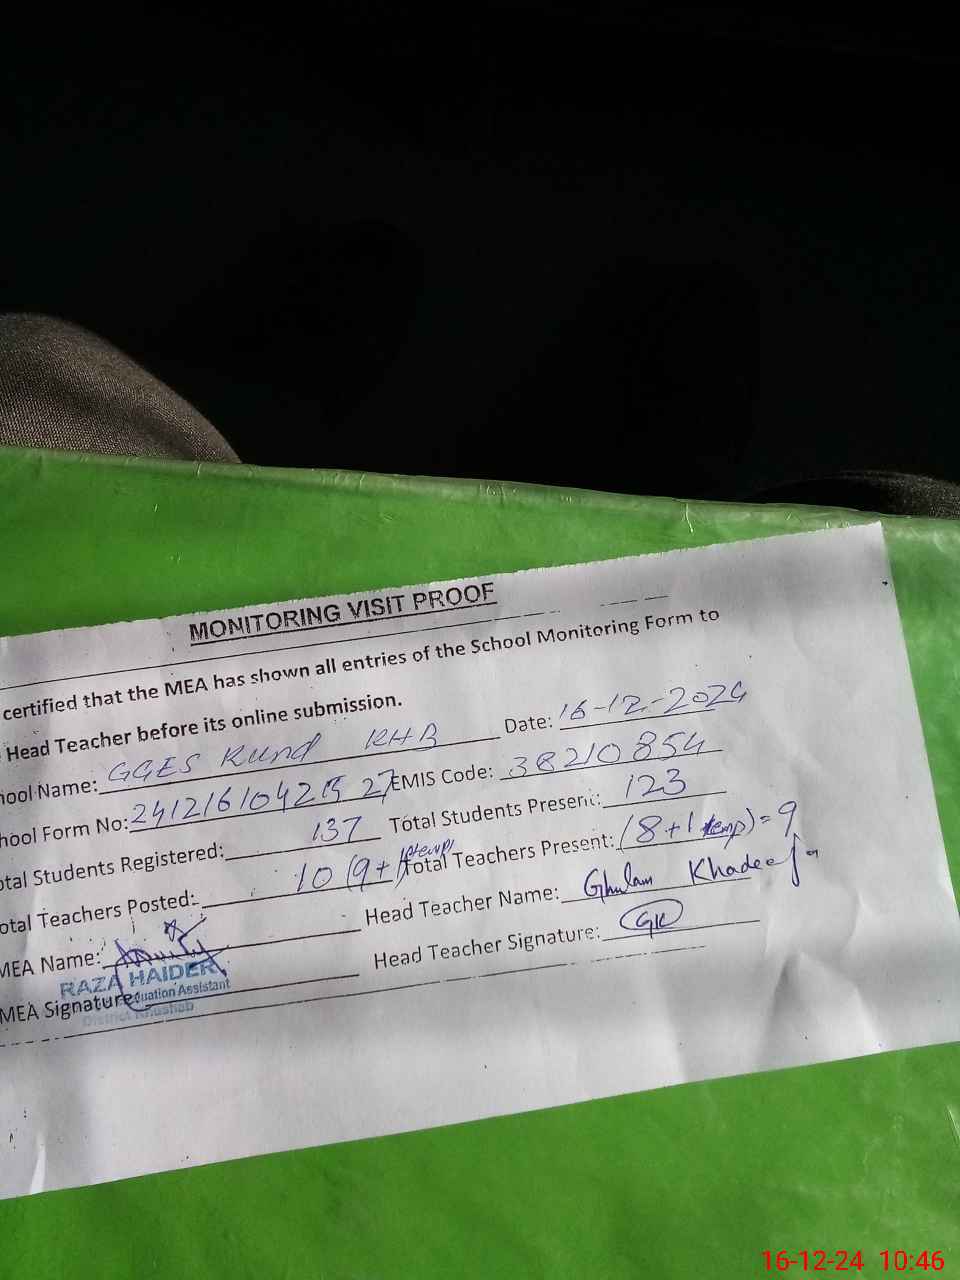 MONITORING VISIT PROOF
certified that the MEA has shown all entries of the School Monitoring Form to
Head Teacher before its online submission.
hool Name: GGES Kund KHB Date: 16-12-2024
hool Form No: EMIS Code: 38210854
otal Students Registered: 137 Total Students Present: 123
otal Teachers Posted: 10 (9+1 temp) Total Teachers Present: (8+1 temp)=9
MEA Name: Head Teacher Name: Ghulam Khadeeja
RAZA HAIDER
MEA Signature Head Teacher Signature: GK
duation Assistant
District Khushab
16-12-24 10:46